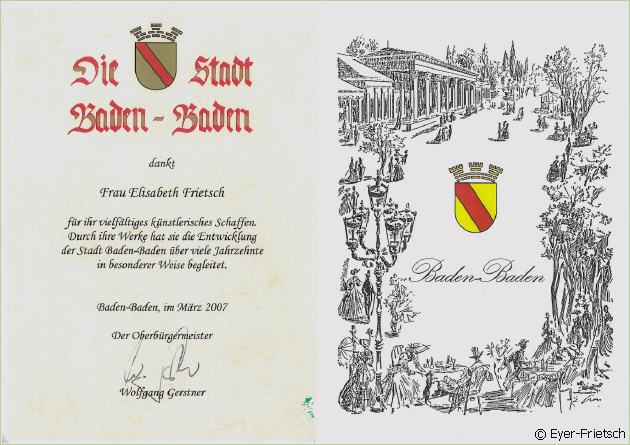 Die Stadt
Baden-Baden
dankt
Frau Elisabeth Frietsch
für ihr vielfältiges künstlerisches Schaffen.
Durch ihre Werke hat sie die Entwicklung
der Stadt Baden-Baden über viele Jahrzehnte
in besonderer Weise begleitet.
Baden-Baden, im März 2007
Der Oberbürgermeister
Wolfgang Gerstner
Baden-Baden
© Eyer-Frietsch